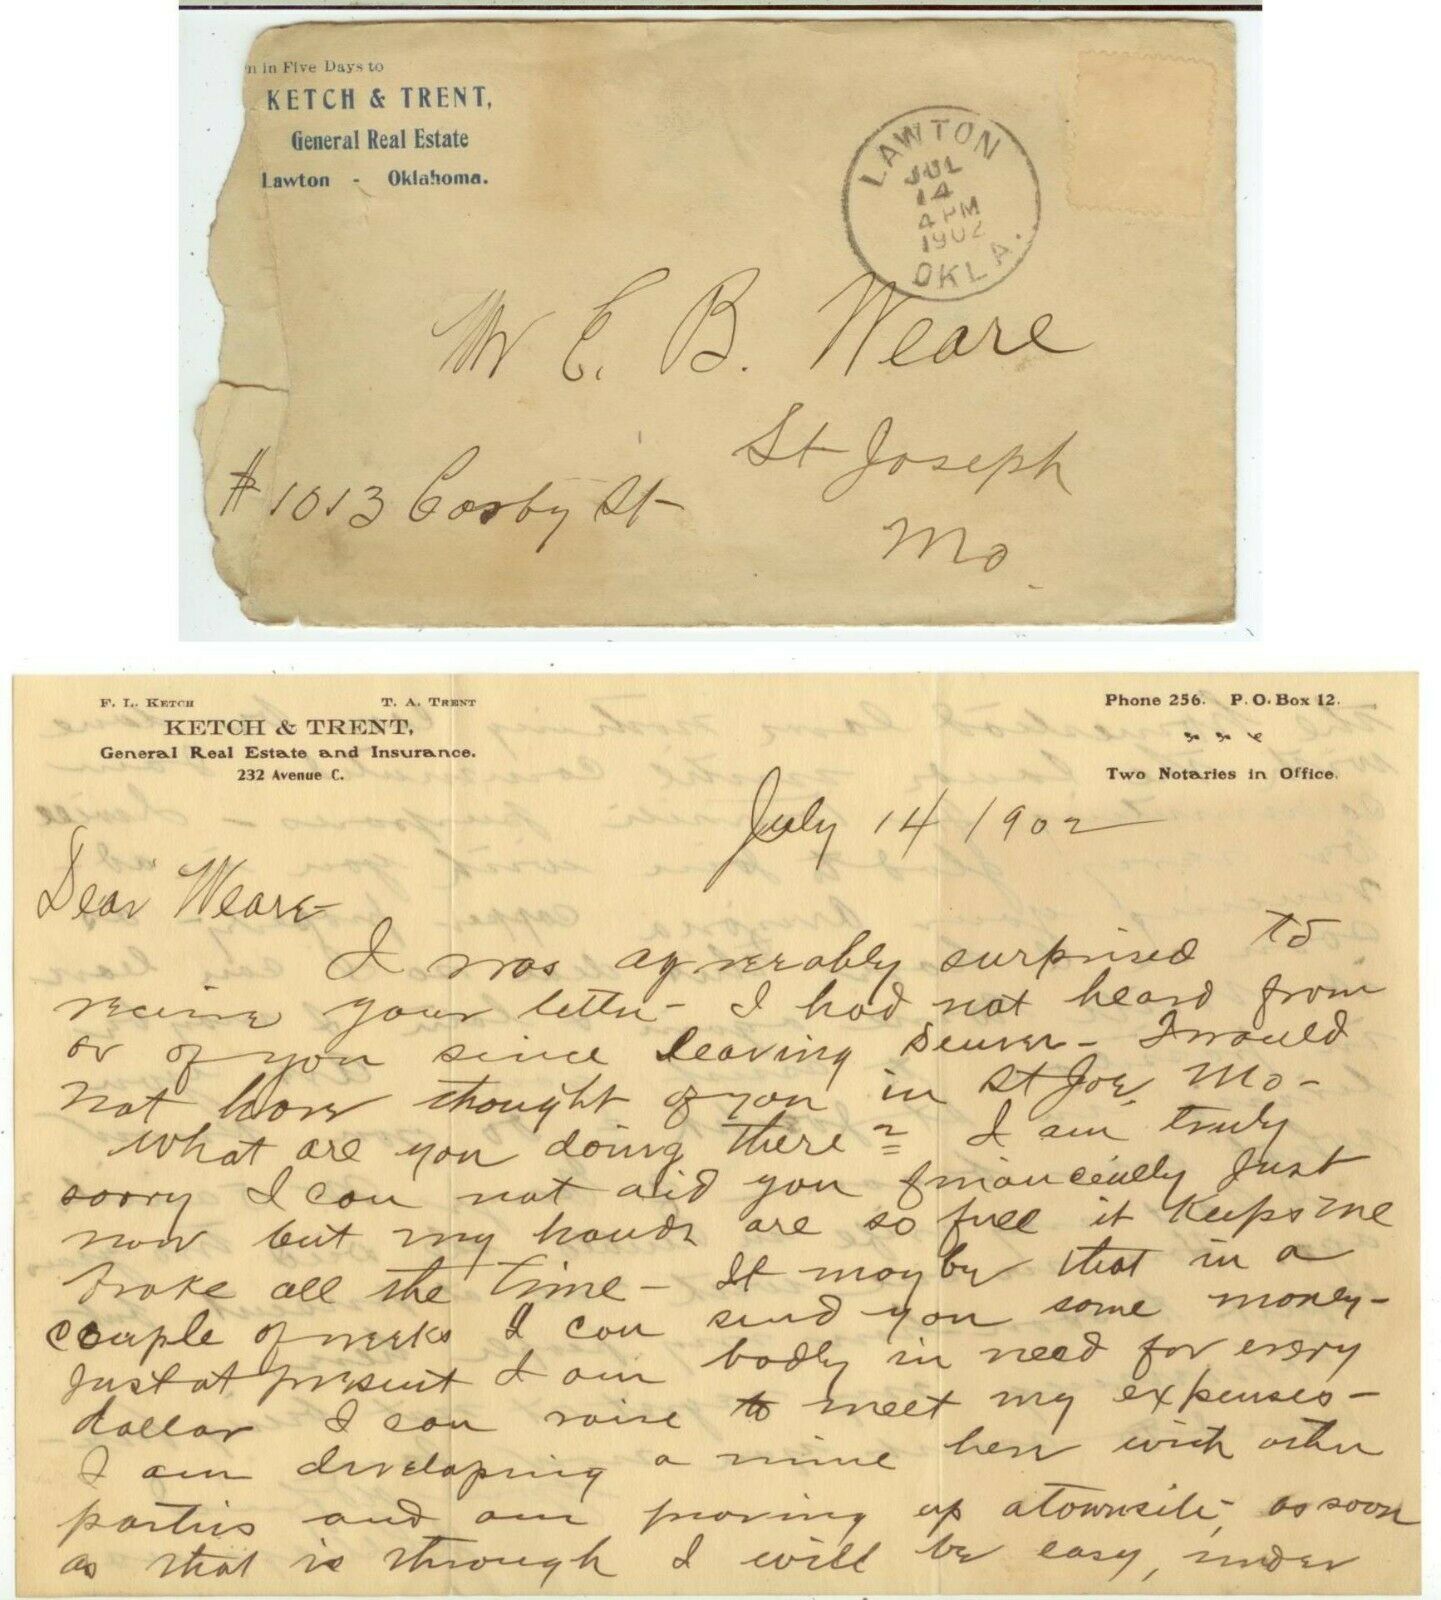 n in Five Days to
KETCH & TRENT,
General Real Estate
Lawton - Oklahoma.
LAWTON
JUL
14
4 PM
1902
OKLA.
Mr E. B. Weare
St Joseph
# 1013 Cosby St
Mo.
F. L. KETCH T. A. TRENT
KETCH & TRENT,
General Real Estate and Insurance.
232 Avenue C.
Phone 256. P. O. Box 12.
Two Notaries in Office.
July 14 1902
Dear Weare-
I was agreeably surprised to
receive your letter- I had not heard from
or of you since leaving Denver- I would
not have thought of you in St Joe, Mo-
What are you doing there? I am truly
sorry I can not aid you financially just
now but my hands are so full it keeps me
broke all the time- It may be that in a
couple of weeks I can send you some money-
just at present I am badly in need for every
dollar I can raise to meet my expenses-
I am developing a mine here with other
parties and am proving up a townsite, as soon
as that is through I will be easy, under